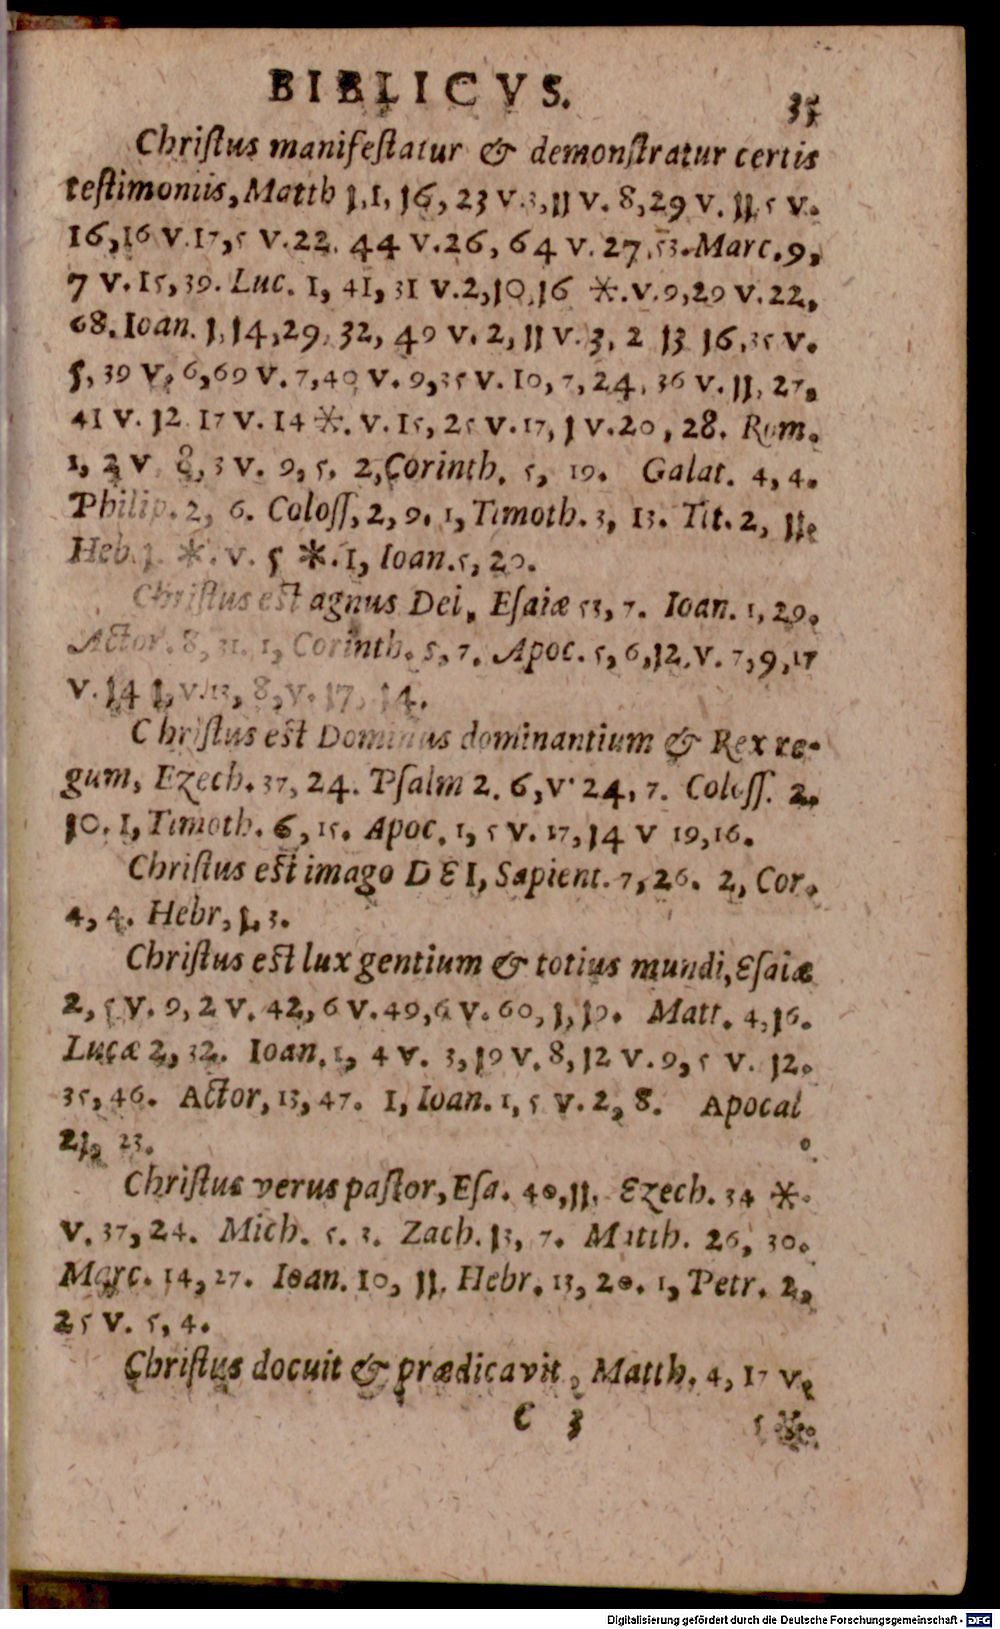 BIBLICVS. 35
Chriſtus manifeſtatur & demonſtratur certis
teſtimoniis, Matth 1, 1, 16, 23 v. 3, 11 v. 8, 29 v. 11, 5 v.
16, 16 v. 17, 5 v. 22. 44 v. 26, 64 v. 27, 53. Marc. 9,
7 v. 15, 39. Luc. 1, 41, 31 v. 2, 10, 16 *. v. 9, 29 v. 22,
68. Ioan. 1, 14, 29, 32, 49 v. 2, 11 v. 3, 2 13 16, 35 v.
5, 39 v. 6, 69 v. 7, 40 v. 9, 35 v. 10, 7, 24, 36 v. 11, 27,
41 v. 12 17 v. 14 *. v. 15, 25 v. 17, 1 v. 20, 28. Rom.
1, 3 v 8, 3 v. 9, 5. 2, Corinth. 5, 19. Galat. 4, 4.
Philip. 2, 6. Coloſſ, 2, 9. 1, Timoth. 3, 13. Tit. 2, 11.
Heb. 1. *. v. 5 *. 1, Ioan. 5, 20.
Chriſtus eſt agnus Dei, Eſaiæ 53, 7. Ioan. 1, 29.
Actor. 8, 31. 1, Corinth. 5, 7. Apoc. 5, 6, 12. v. 7, 9, 17
v. 14 1, v. 13, 8, v. 17, 14.
Chriſtus eſt Dominus dominantium & Rex re-
gum, Ezech. 37, 24. Pſalm 2. 6, v. 24, 7. Coloſſ. 2.
10. 1, Timoth. 6, 15. Apoc. 1, 5 v. 17, 14 v 19, 16.
Chriſtus eſt imago DEI, Sapient. 7, 26. 2, Cor.
4, 4. Hebr, 1, 3.
Chriſtus eſt lux gentium & totius mundi, Eſaiæ
2, 5 v. 9, 2 v. 42, 6 v. 49, 6 v. 60, 1, 19. Matt. 4, 16.
Lucæ 2, 32. Ioan. 1, 4 v. 3, 19 v. 8, 12 v. 9, 5 v. 12.
35, 46. Actor, 13, 47. 1, Ioan. 1, 5 v. 2, 8. Apocal
21, 23.
Chriſtus verus paſtor, Eſa. 40, 11. Ezech. 34 *.
v. 37, 24. Mich. 5. 3. Zach. 13, 7. Matth. 26, 30.
Marc. 14, 27. Ioan. 10, 11. Hebr. 13, 20. 1, Petr. 2,
25 v. 5, 4.
Chriſtus docuit & prædicavit, Matth. 4, 17 v.
C 3 5 *.
Digitalisierung gefördert durch die Deutsche Forschungsgemeinschaft - DFG